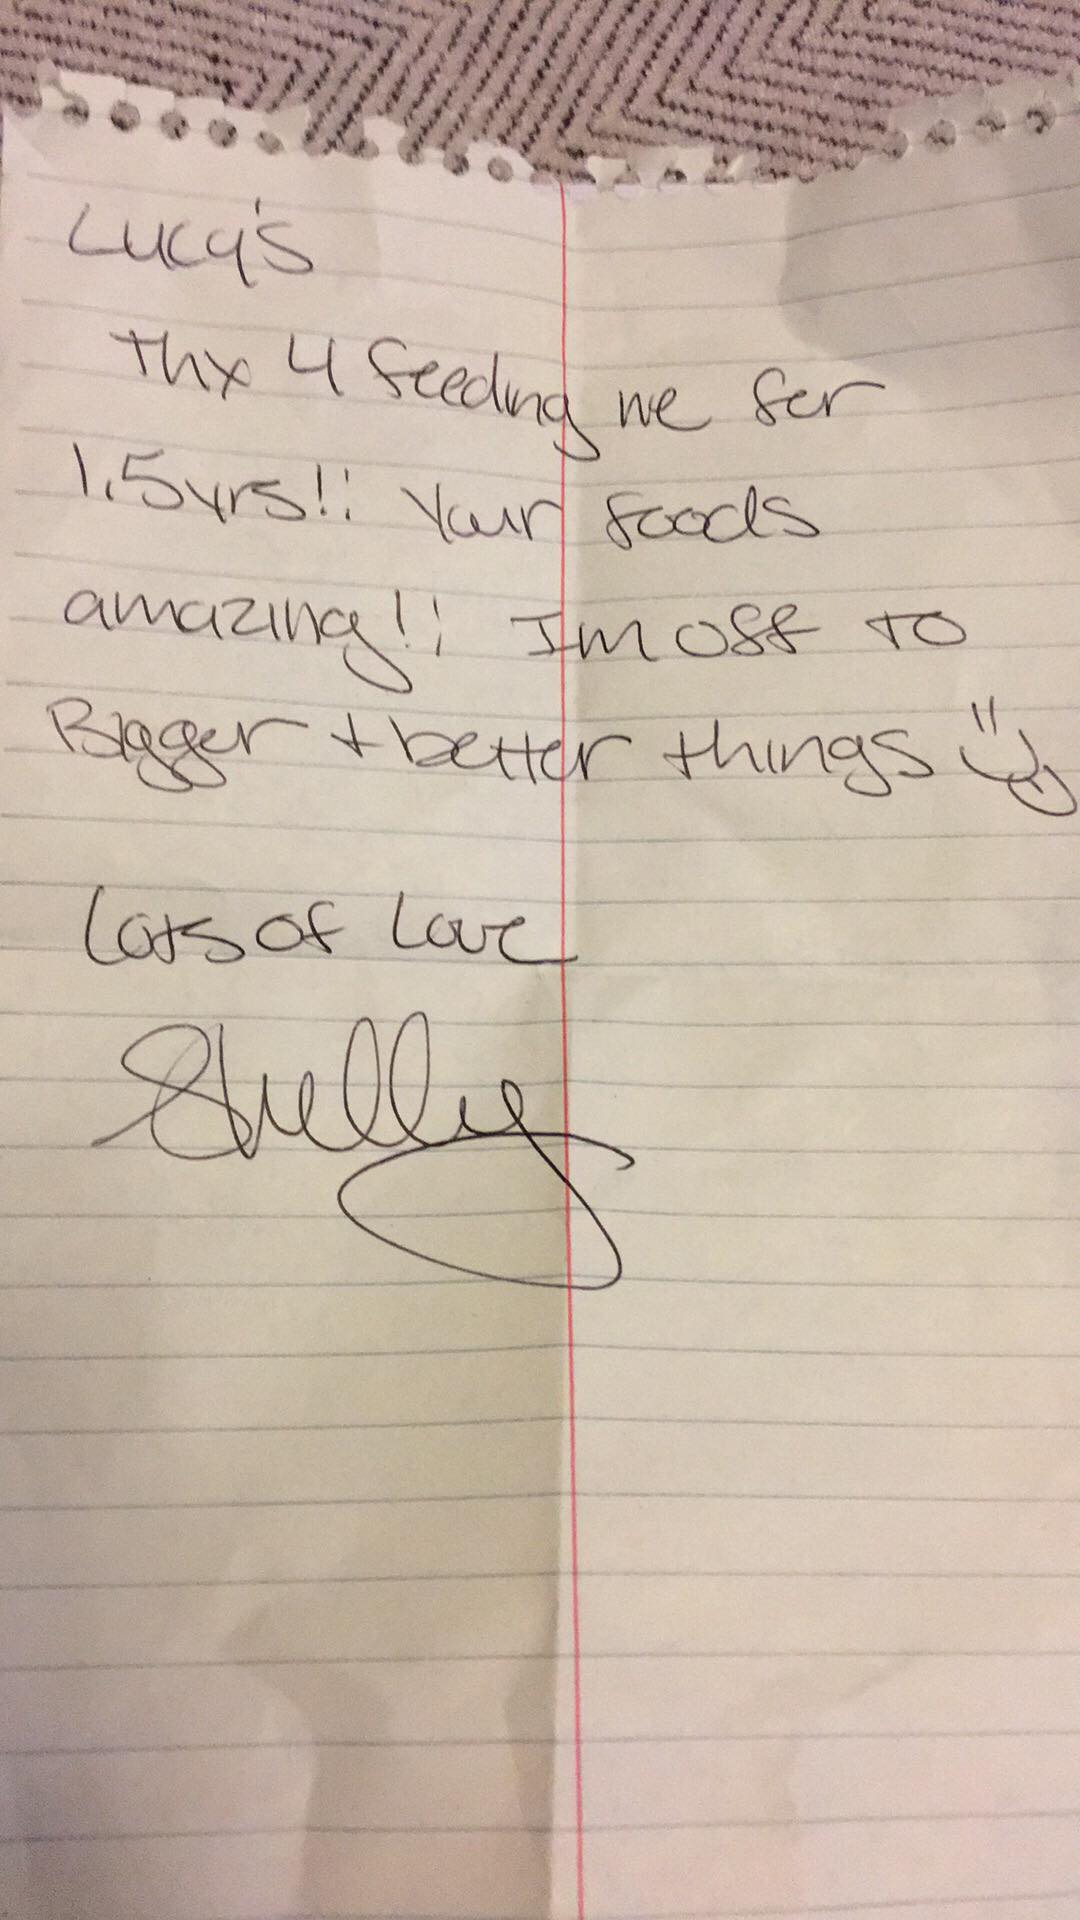 Lucy's
Thx 4 feeding me for
1.5yrs!! Your foods
amazing!! Im off to
Bigger + better things
Lots of Love
Shelly